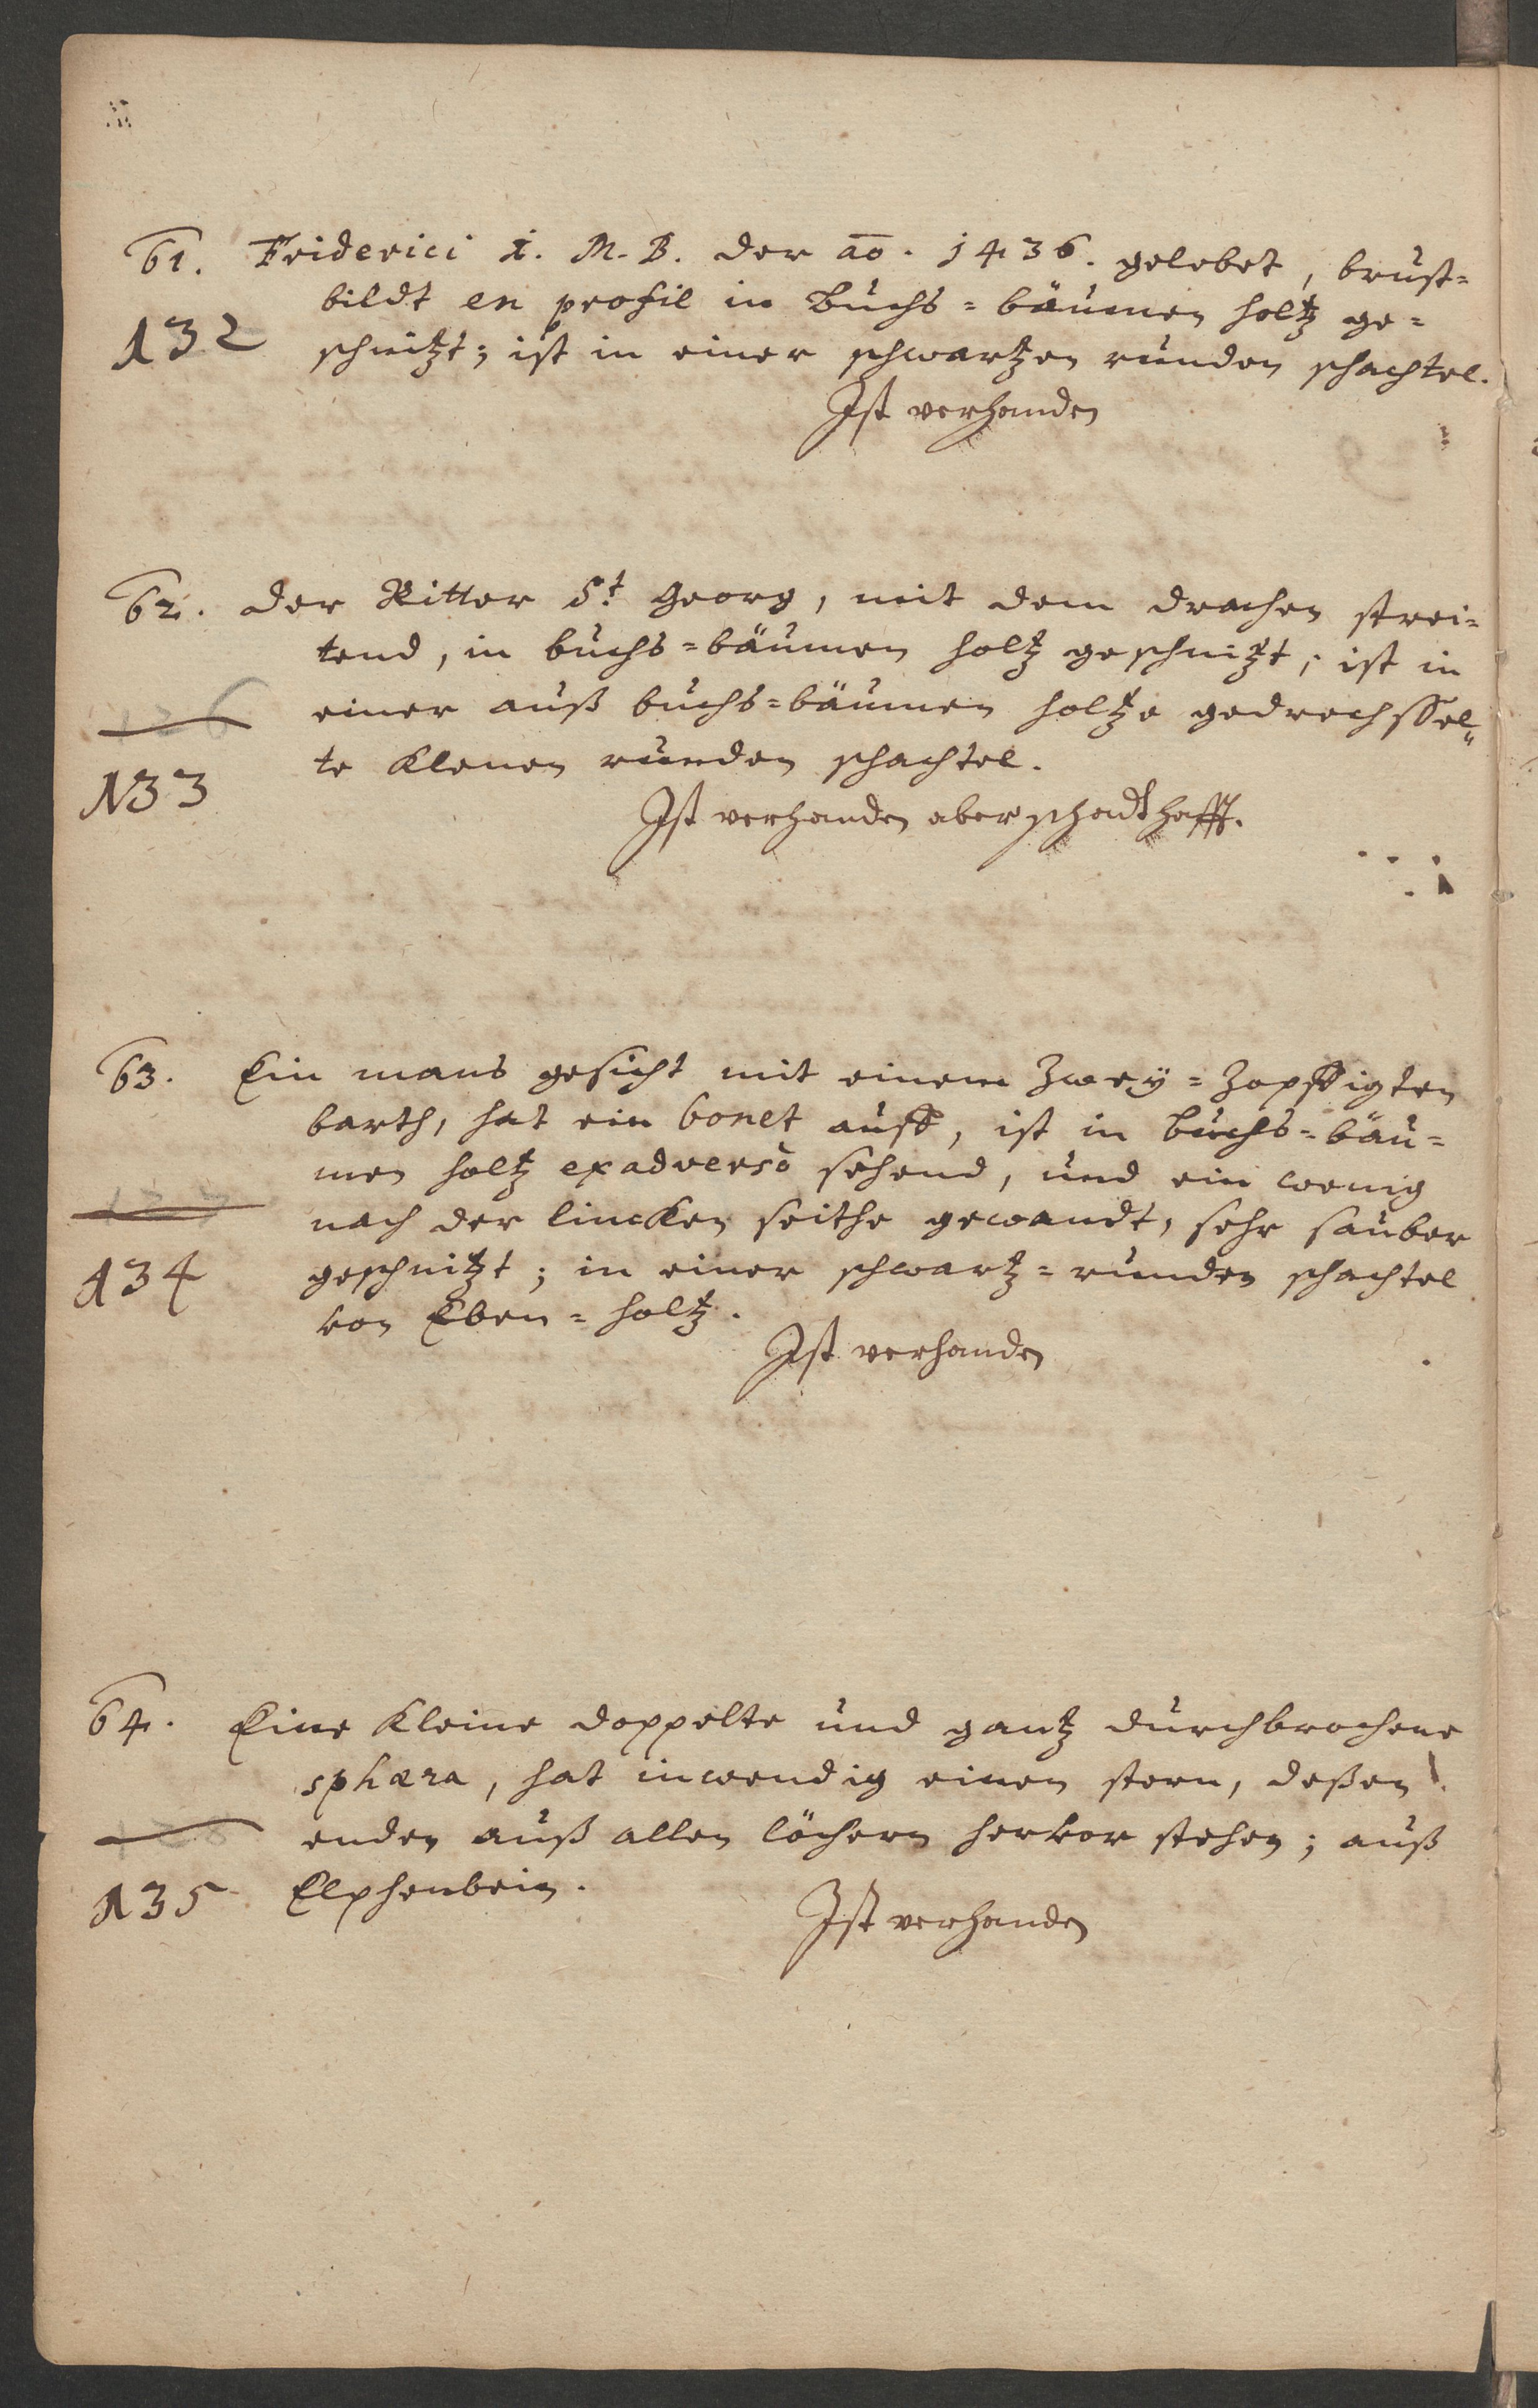 61. Friderici i. M. B. der ao. 1436. gelebet, brust=
bildt en profil in Buchs=bäumen holtz ge=
132
schnitzt; ist in einer schwartzen runden schachtel.
Ist verhanden
62. der Ritter St. Georg, mit dem drachen strei=
tend, in buchs=bäumen holtz geschnitzt, ist in
einer auß buchs=bäumen holtze gedrechssel=
133
te kleinen runden schachtel.
Ist verhanden aber schadthafft.
63. Ein mans gesicht mit einem zwey=zopffigten
barth, hat ein bonet auff, ist in Buchs=bäu=
men holtz ex adverso sehend, und ein wenig
nach der lincken seithe gewandt, sehr sauber
134
geschnitzt; in einer schwartz=runden schachtel
von Eben=holtz.
Ist verhanden
64. Eine kleine doppelte und gantz durchbrochene
sphæra, hat inwendig einen stern, deßen
enden auß allen löchern hervor stehen; auß
135
Elphenbein.
Ist verhanden